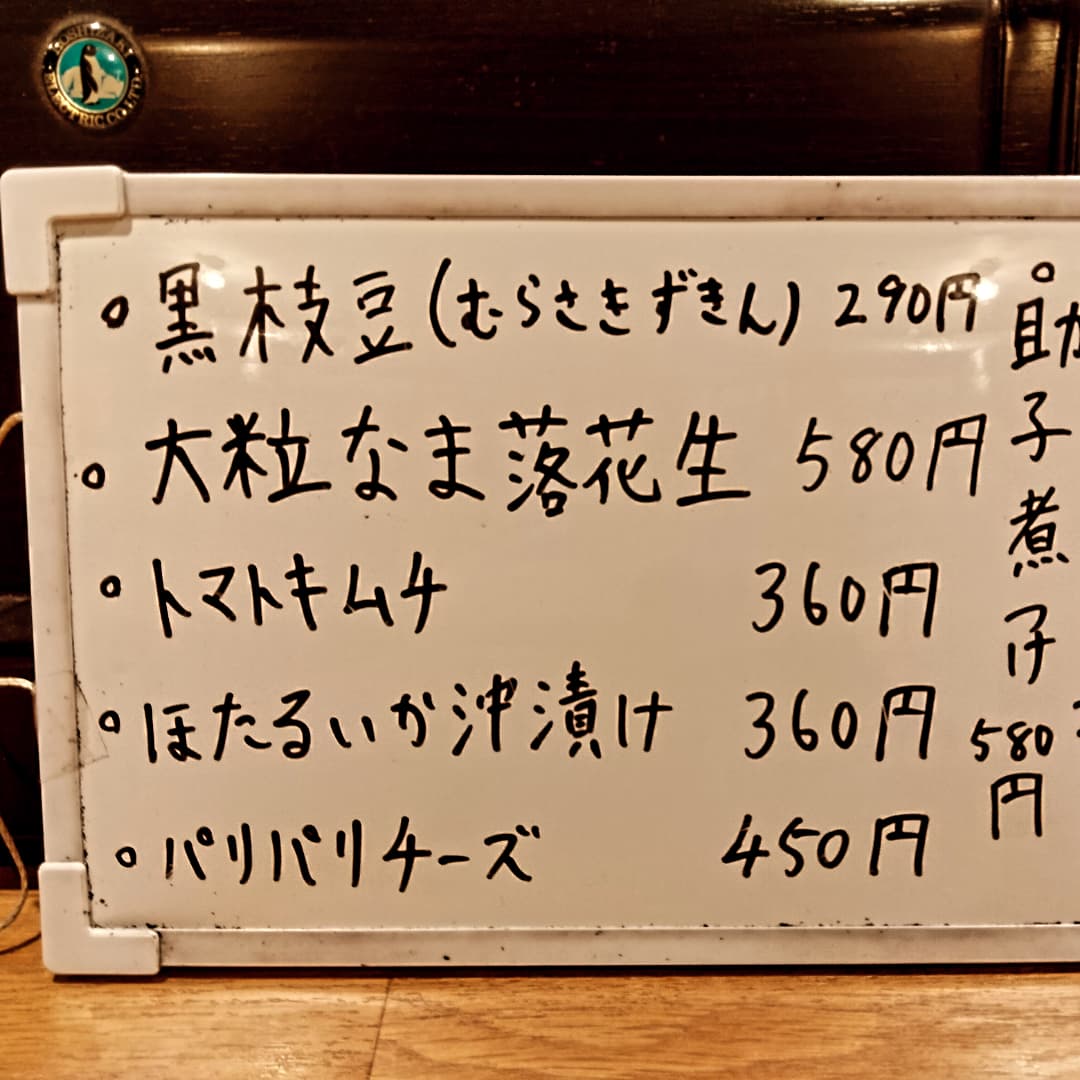 HOSHIZAKI ELECTRIC CO.LTD.
。黒枝豆(むらさきずきん) 290円
。大粒なま落花生 580円
。トマトキムチ 360円
。ほたるいか沖漬け 360円
。パリパリチーズ 450円
。助
子
煮
付
580
円